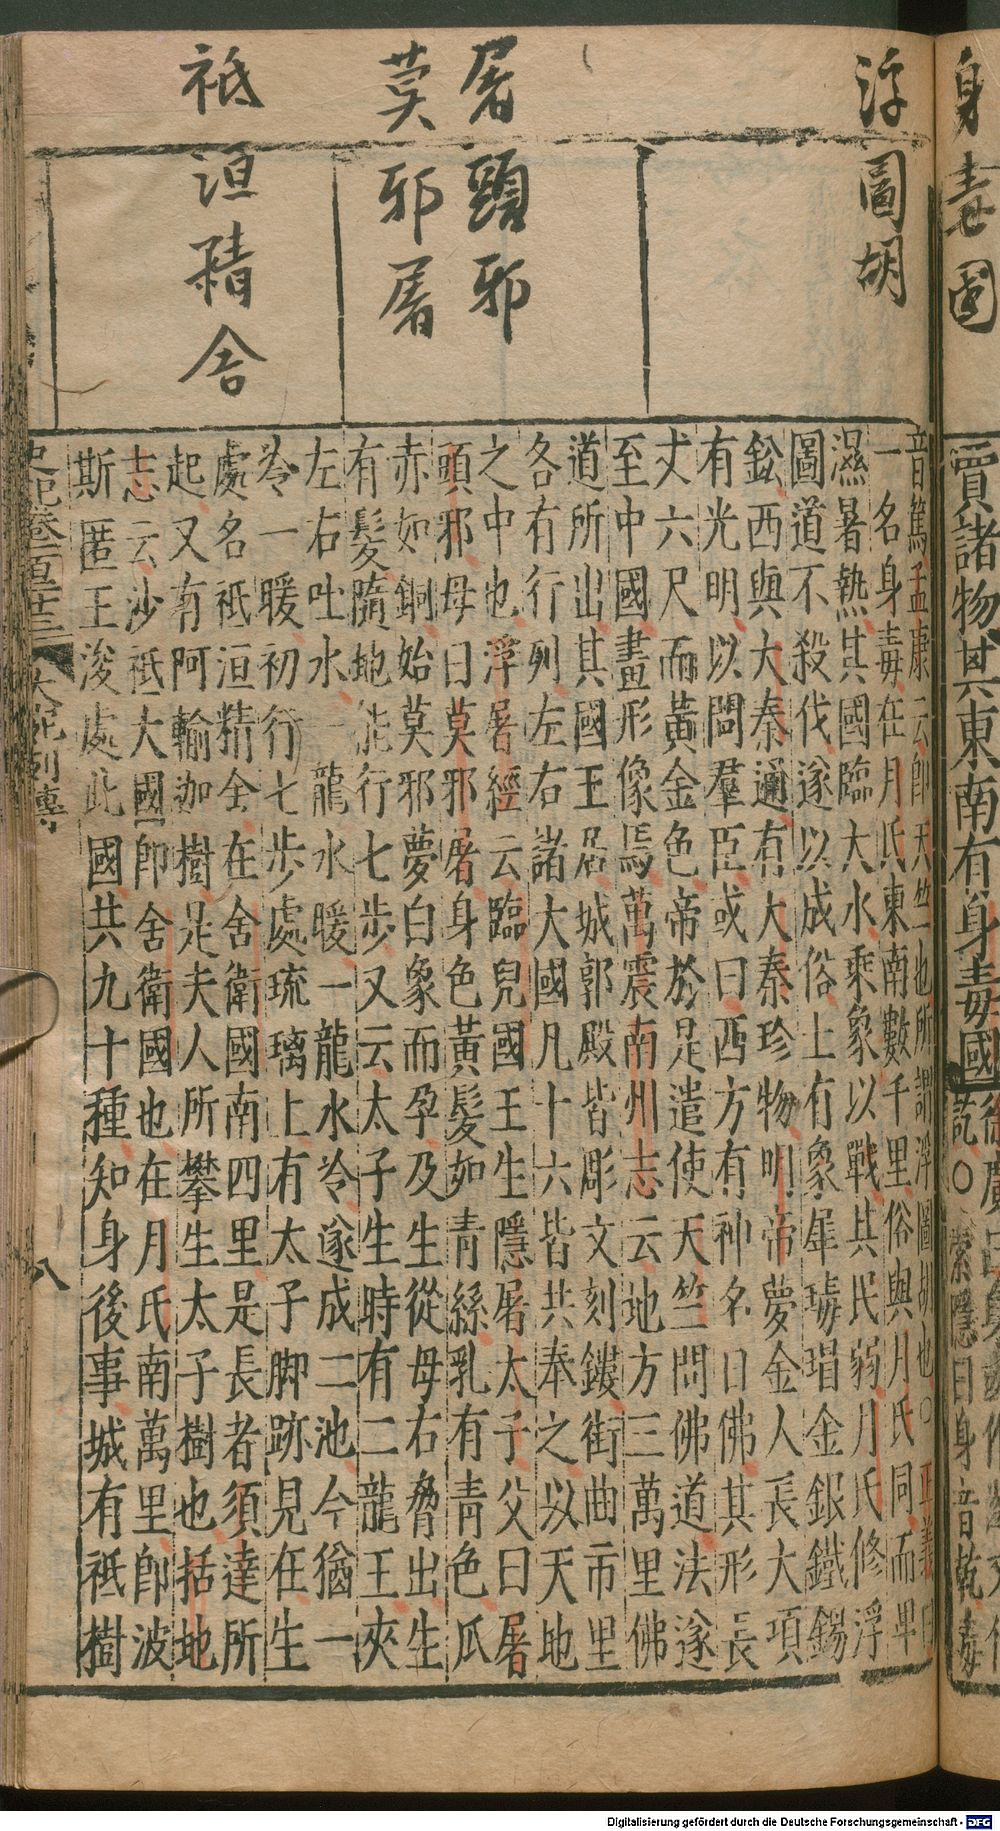 身毒國
浮圖胡
屠頭邪
莫邪屠
祇洹精舍
賈諸物其東南有身毒國
徐廣曰身或作乾又作
訖○索隱曰身音乾毒
音篤孟康云即天竺也所謂浮圖胡也○正義曰
一名身毒在月氏東南數千里俗與月氏同而卑
濕暑熱其國臨大水乘象以戰其民弱月氏修浮
圖道不殺伐遂以成俗土有象犀瑇瑁金銀鐵錫
鈆西與大秦通有大秦珍物明帝夢金人長大項
有光明以問羣臣或曰西方有神名曰佛其形長
丈六尺而黃金色帝於是遣使天竺問佛道法遂
至中國畫形像焉萬震南州志云地方三萬里佛
道所出其國王居城郭殿皆彫文刻鏤街曲市里
各有行列左右諸大國凡十六皆共奉之以天地
之中也浮屠經云臨兒國王生隱屠太子父曰屠
頭邪母曰莫邪屠身色黃髮如青絲乳有青色爪
赤如銅始莫邪夢白象而孕及生從母右脅出生
有髮墮地能行七步又云太子生時有二龍王夾
左右吐水一龍水暖一龍水冷遂成二池今猶一
冷一暖初行七步處琉璃上有太子脚跡見在生
處名祇洹精舍在舍衛國南四里是長者須達所
起又有阿輸迦樹是夫人所攀生太子樹也括地
志云沙祇大國即舍衛國也在月氏南萬里即波
斯匿王浚處此國共九十種知身後事城有祗樹
史記卷一百廿三 大宛列傳 八
Digitalisierung gefördert durch die Deutsche Forschungsgemeinschaft - DFG